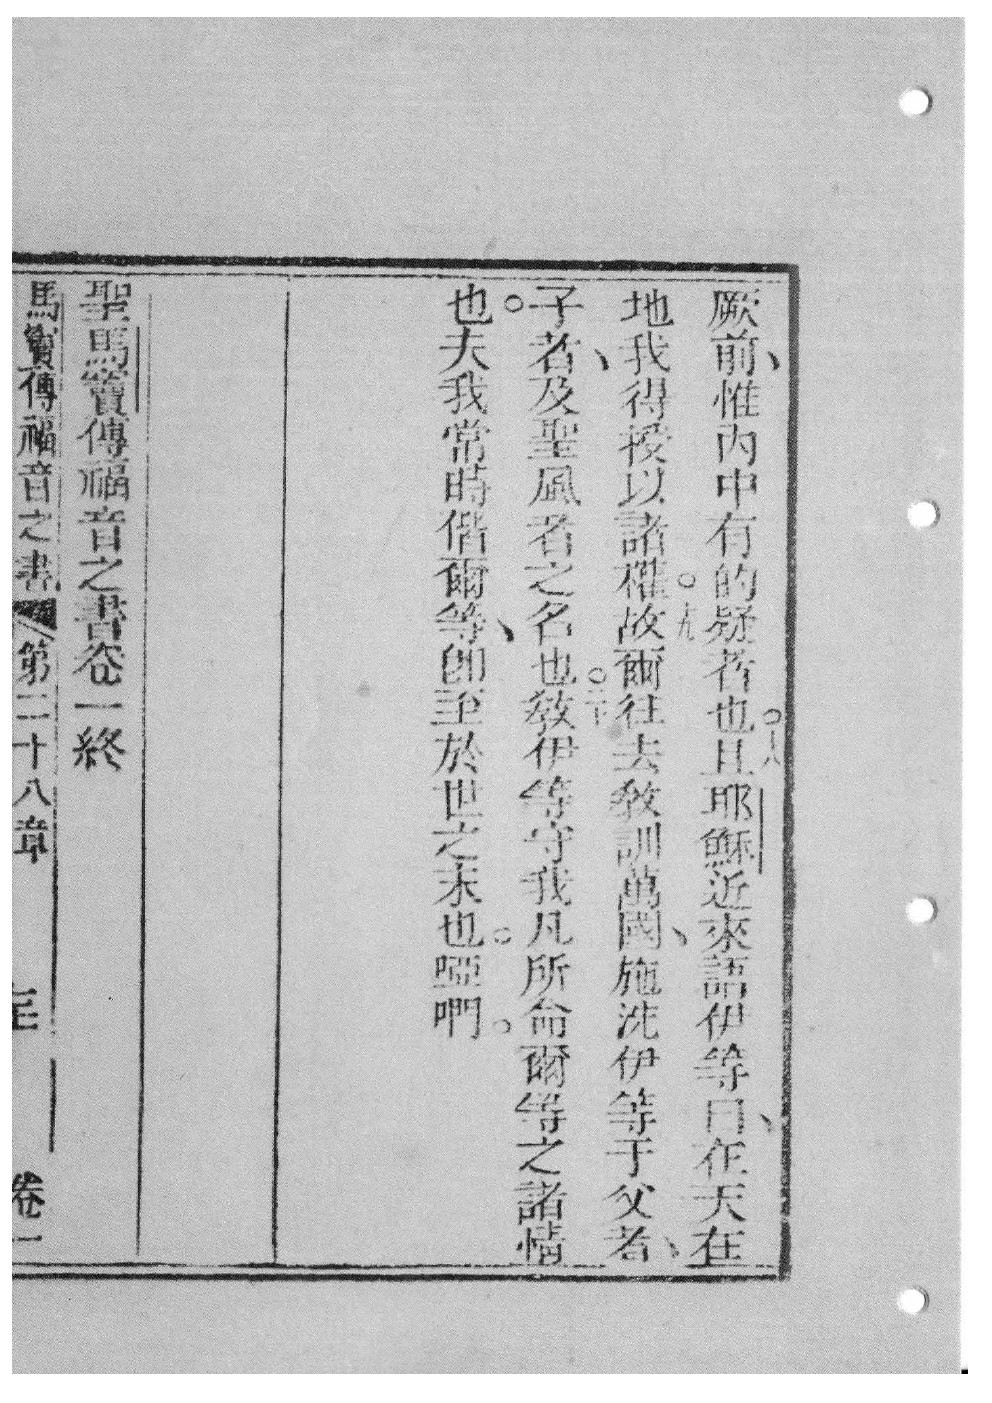 厥前、惟內中有的疑者也。十八且耶穌近來語伊等曰、在天在
地我得授以諸權。十九故爾往去敎訓萬國、施洗伊等于父者、
子者、及聖風者之名也。二十敎伊等守我凡所命爾等之諸情
也。夫我常時偕爾等、卽至於世之末也。啞啊。
聖馬竇傳福音之書卷一終
馬竇傳福音之書 第二十八章 卷一